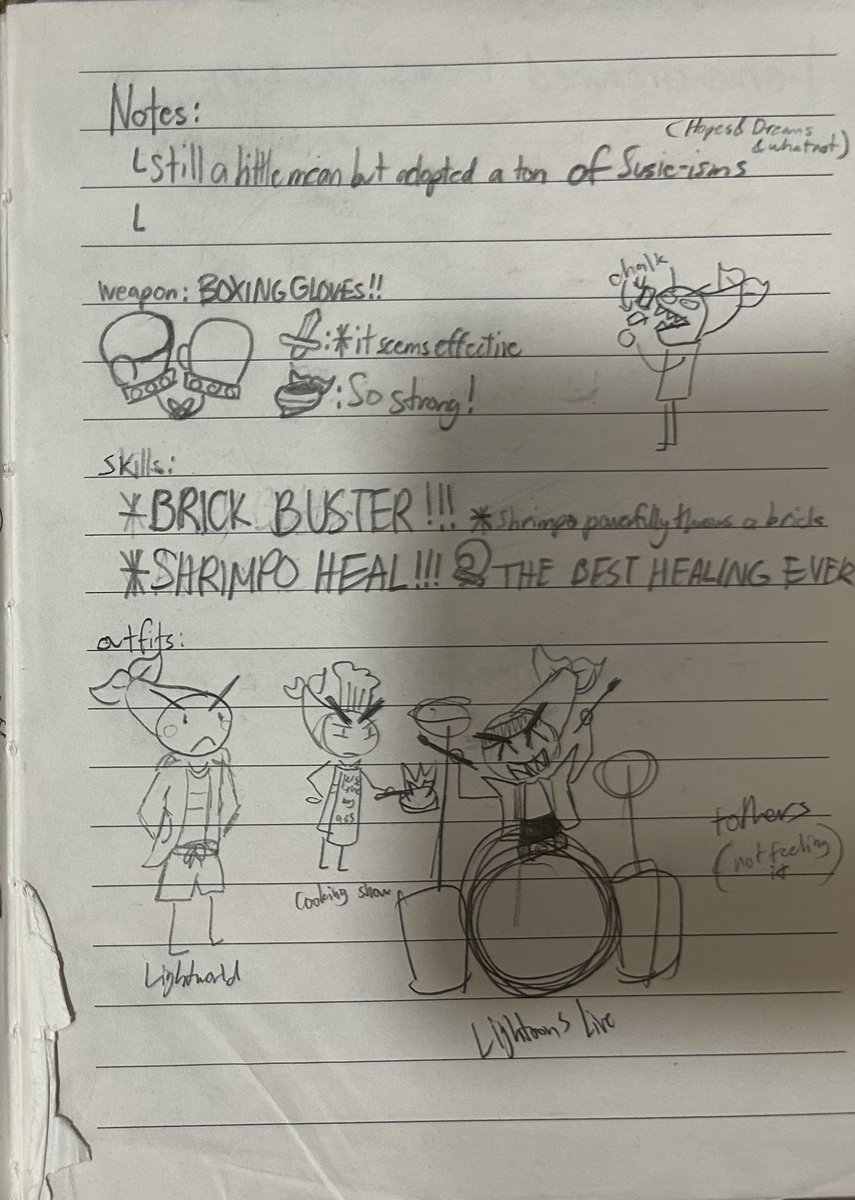 Notes:
(Hopes & Dreams
& whatnot)
L still a little mean but adopted a ton of Susie-isms
L
weapon: BOXING GLOVES!!
chalk
: * it seems effective
: So strong!
skills:
* BRICK BUSTER!!! * Shrimpo powerfully throws a brick
* SHRIMPO HEAL!!! THE BEST HEALING EVER
outfits:
Cooking show
Lightworld
Lightoons Live
+others
(not feeling
it)